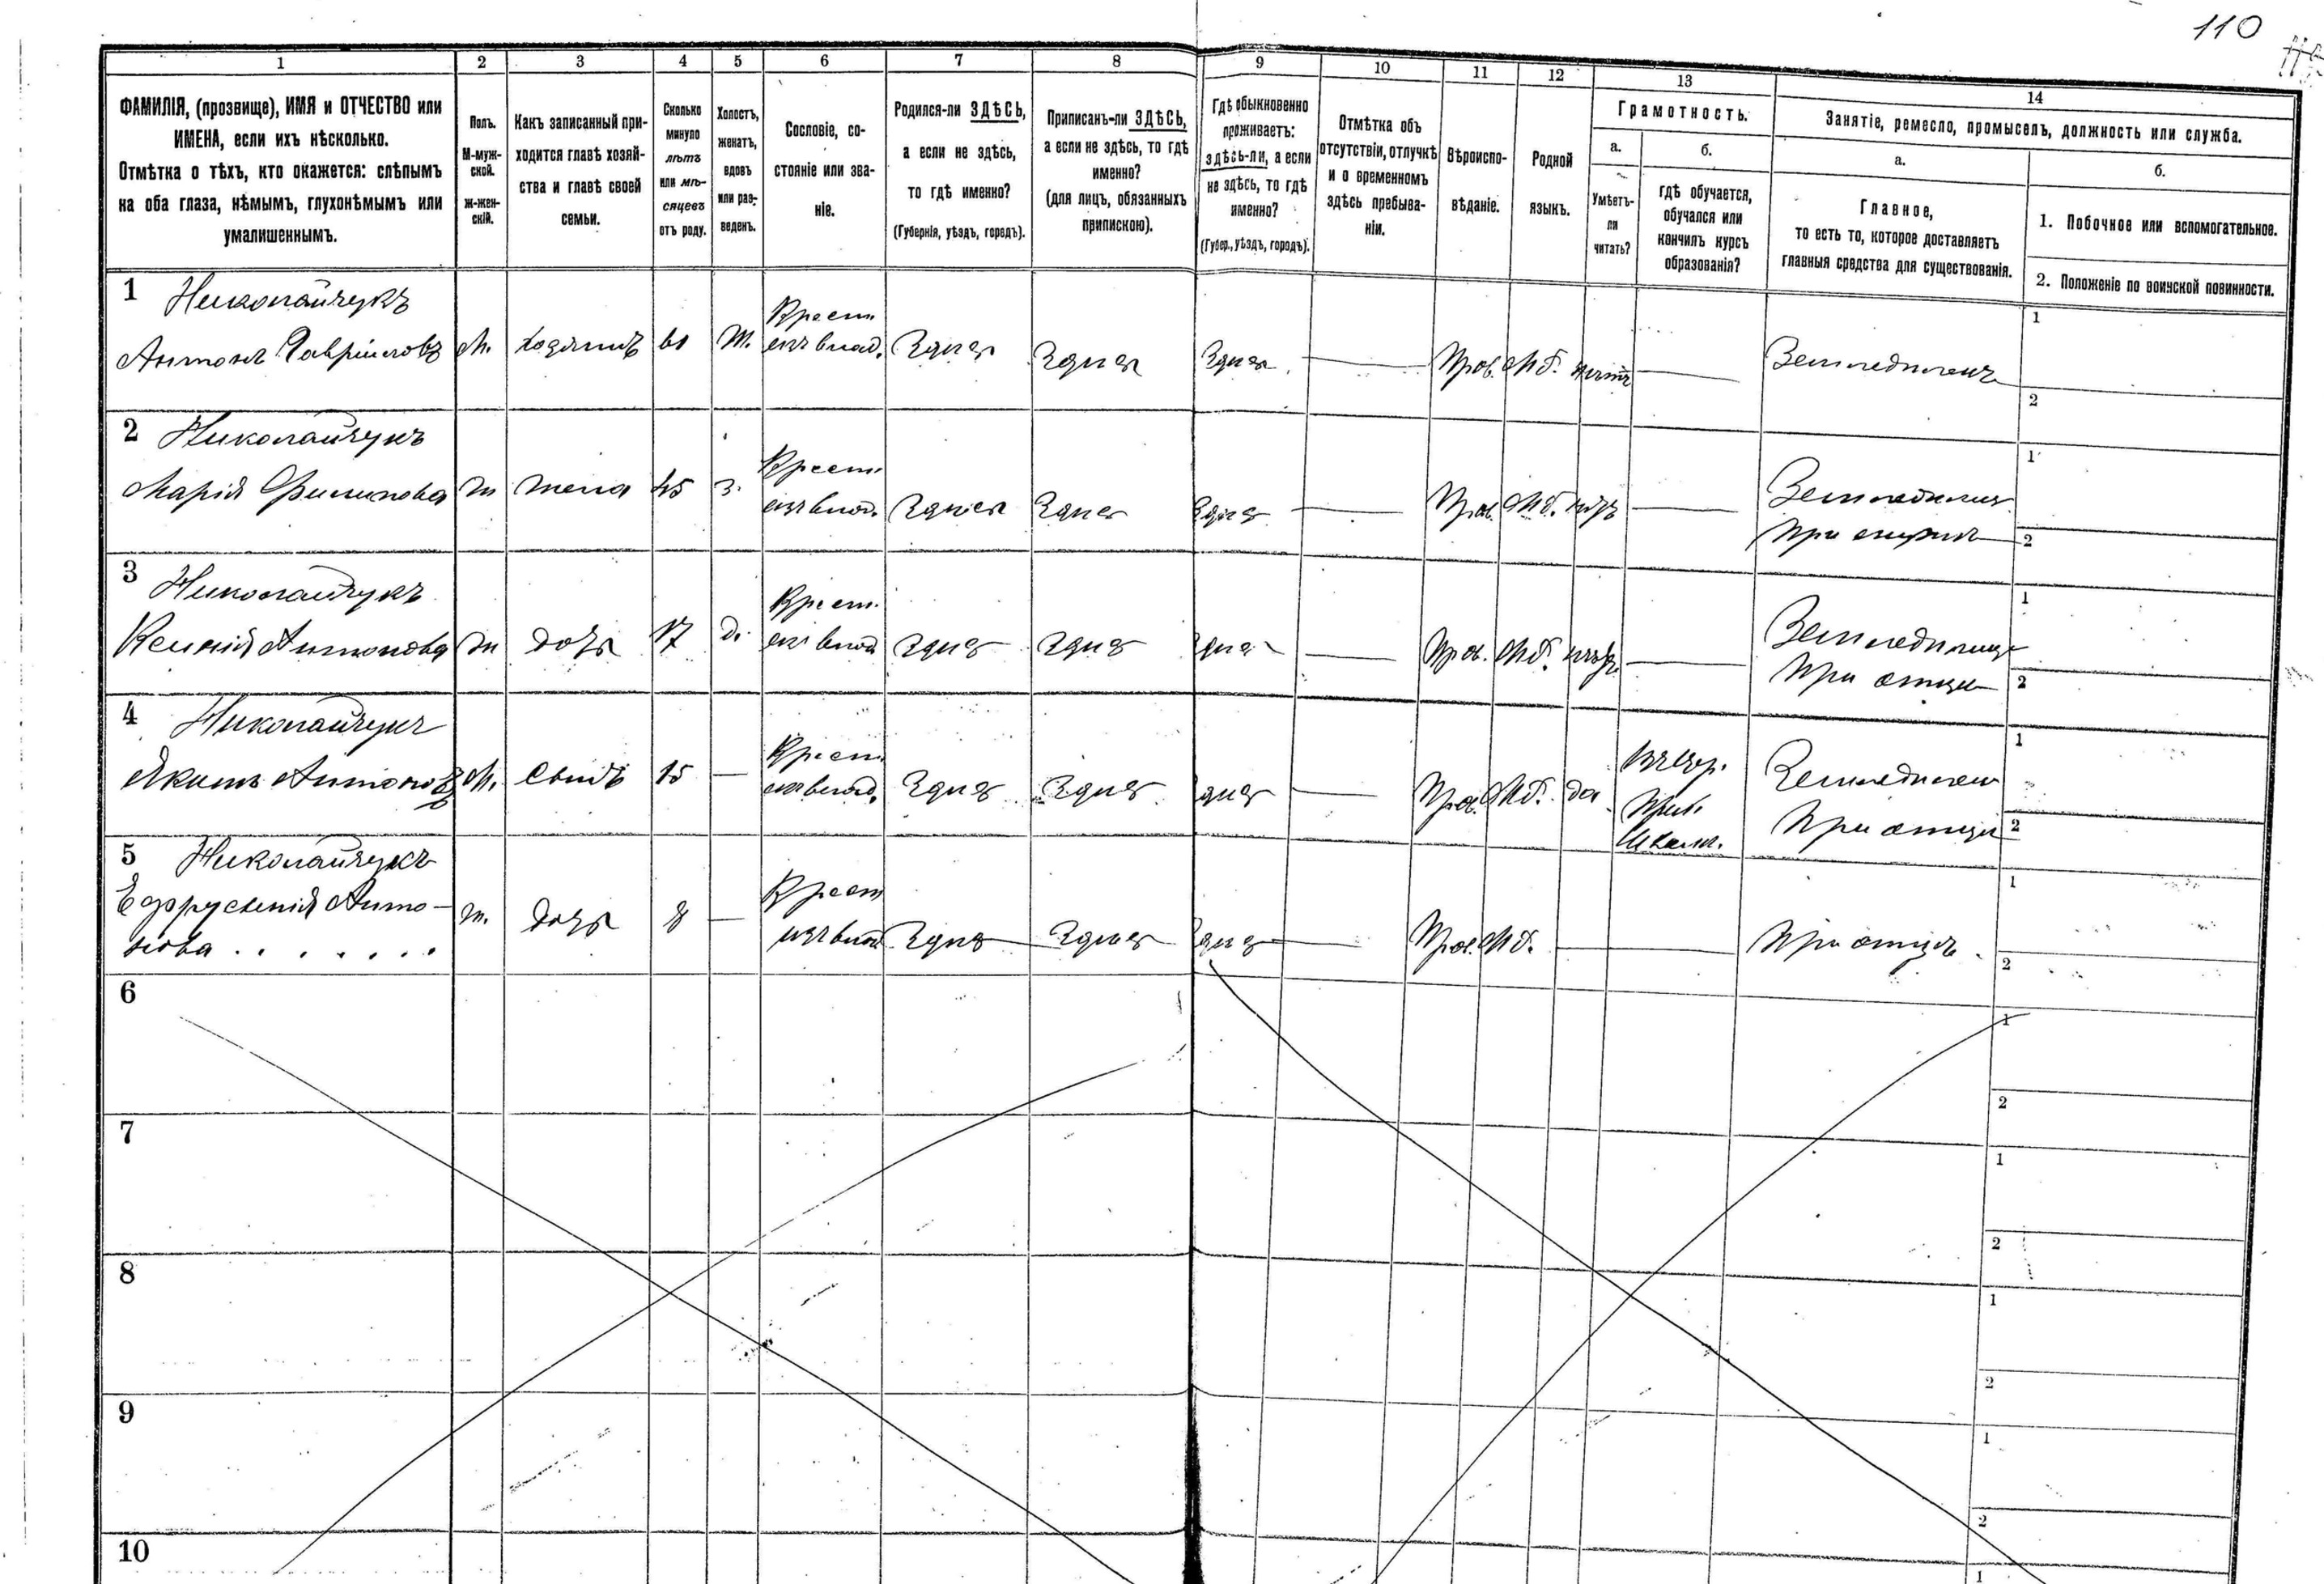 110
1 2 3 4 5 6 7 8 9 10 11 12 13 14
ФАМИЛІЯ, (прозвище), ИМЯ и ОТЧЕСТВО или
ИМЕНА, если ихъ нѣсколько.
Отмѣтка о тѣхъ, кто окажется: слѣпымъ
на оба глаза, нѣмымъ, глухонѣмымъ или
умалишеннымъ.
Полъ.
М-муж-
ской.
ж-жен-
скій.
Какъ записанный при-
ходится главѣ хозяй-
ства и главѣ своей
семьи.
Сколько
минуло
лѣтъ
или мѣ-
сяцевъ
отъ роду.
Холостъ,
женатъ,
вдовъ
или раз-
веденъ.
Сословіе, со-
стояніе или зва-
ніе.
Родился-ли ЗДѢСЬ,
а если не здѣсь,
то гдѣ именно?
(Губернія, уѣздъ, городъ).
Приписанъ-ли ЗДѢСЬ,
а если не здѣсь, то гдѣ
именно?
(для лицъ, обязанныхъ
припискою).
Гдѣ обыкновенно
проживаетъ:
здѣсь-ли, а если
не здѣсь, то гдѣ
именно?
(Губер., уѣздъ, городъ).
Отмѣтка объ
отсутствіи, отлучкѣ
и о временномъ
здѣсь пребыва-
ніи.
Вѣроиспо-
вѣданіе.
Родной
языкъ.
Грамотность.
а.
Умѣетъ-
ли
читать?
б.
гдѣ обучается,
обучался или
кончилъ курсъ
образованія?
Занятіе, ремесло, промыселъ, должность или служба.
а.
Главное,
то есть то, которое доставляетъ
главныя средства для существованія.
б.
1. Побочное или вспомогательное.
2. Положеніе по воинской повинности.
1 Николайчукъ
Антонъ Гавріиловъ М. хозяинъ 61 Ж. Крест. изъ влад. Здѣсь Здѣсь Здѣсь Прав. Мб. нѣтъ Земледѣлецъ 1
2
2 Николайчукъ
Марія Филипова ж жена 45 з. Крест. изъ влад. Здѣсь Здѣсь Здѣсь Прав. Мб. нѣтъ Земледѣлица 1
при 2
3 Николайчукъ
Ксенія Антонова ж дочь 17 д. Крест. изъ влад. Здѣсь Здѣсь Здѣсь Прав. Мб. нѣтъ Земледѣлица 1
при отцѣ 2
4 Николайчукъ
Якимъ Антоновъ М. сынъ 15 Крест. изъ влад. Здѣсь Здѣсь Здѣсь Прав. Мб. да Земледѣлецъ 1
школѣ. при отцѣ 2
5 Николайчукъ
Ефрусенія Анто-
нова . . . . . . . ж. дочь 8 Крест изъ влад Здѣсь Здѣсь Здѣсь Прав. Мб. при отцѣ. 1
2
6 1
2
7 1
2
8 1
2
9 1
2
10 1